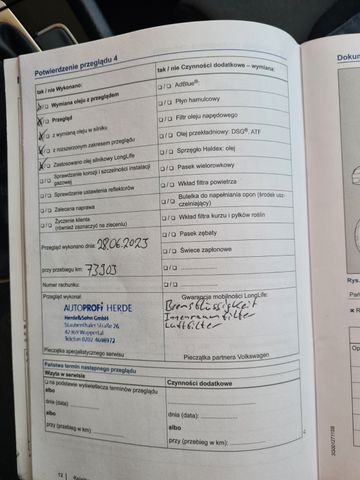 Potwierdzenie przeglądu 4
tak / nie Wykonano:
☐/☐ Wymiana oleju z przeglądem
☐/☐ Przegląd
☐/☐ z wymianą oleju w silniku
☐/☐ z rozszerzonym zakresem przeglądu
☐/☐ Zastosowano olej silnikowy LongLife
☐/☐ Sprawdzenie korozji i szczelności instalacji
gazowej
☐/☐ Sprawdzenie ustawienia reflektorów
☐/☐ Zalecana naprawa
☐/☐ Życzenie klienta
(również zaznaczyć na zleceniu)
Przegląd wykonano dnia: 28.06.2023
przy przebiegu km: 73903
Numer rachunku:
Przegląd wykonał
AUTOPROFI HERDE
Herde&Sohn GmbH
Staubenthaler Straße 26
42369 Wuppertal
Telefon 0202 4698972
Pieczątka specjalistycznego serwisu
tak / nie Czynności dodatkowe – wymiana:
☐/☐ AdBlue®:
☐/☐ Płyn hamulcowy
☐/☐ Filtr oleju napędowego
☐/☐ Olej przekładniowy: DSG®, ATF
☐/☐ Sprzęgło Haldex: olej
☐/☐ Pasek wielorowkowy
☐/☐ Wkład filtra powietrza
☐/☐ Butelka do napełniania opon (środek usz-
czelniający)
☐/☐ Wkład filtra kurzu i pyłków roślin
☐/☐ Pasek zębaty
☐/☐ Świece zapłonowe
☐/☐
☐/☐
Gwarancja mobilności LongLife:
Bremsflüssigkeit
Innenraumfilter
Luftfilter
Pieczątka partnera Volkswagen
Państwa termin następnego przeglądu
Wizyta w serwisie
☐ na podstawie wyświetlacza terminów przeglądu
albo
dnia (data):
albo
przy (przebieg w km):
Czynności dodatkowe
dnia (data):
albo
przy (przebieg w km):
12
Dokum
Rys.
Pań
Op